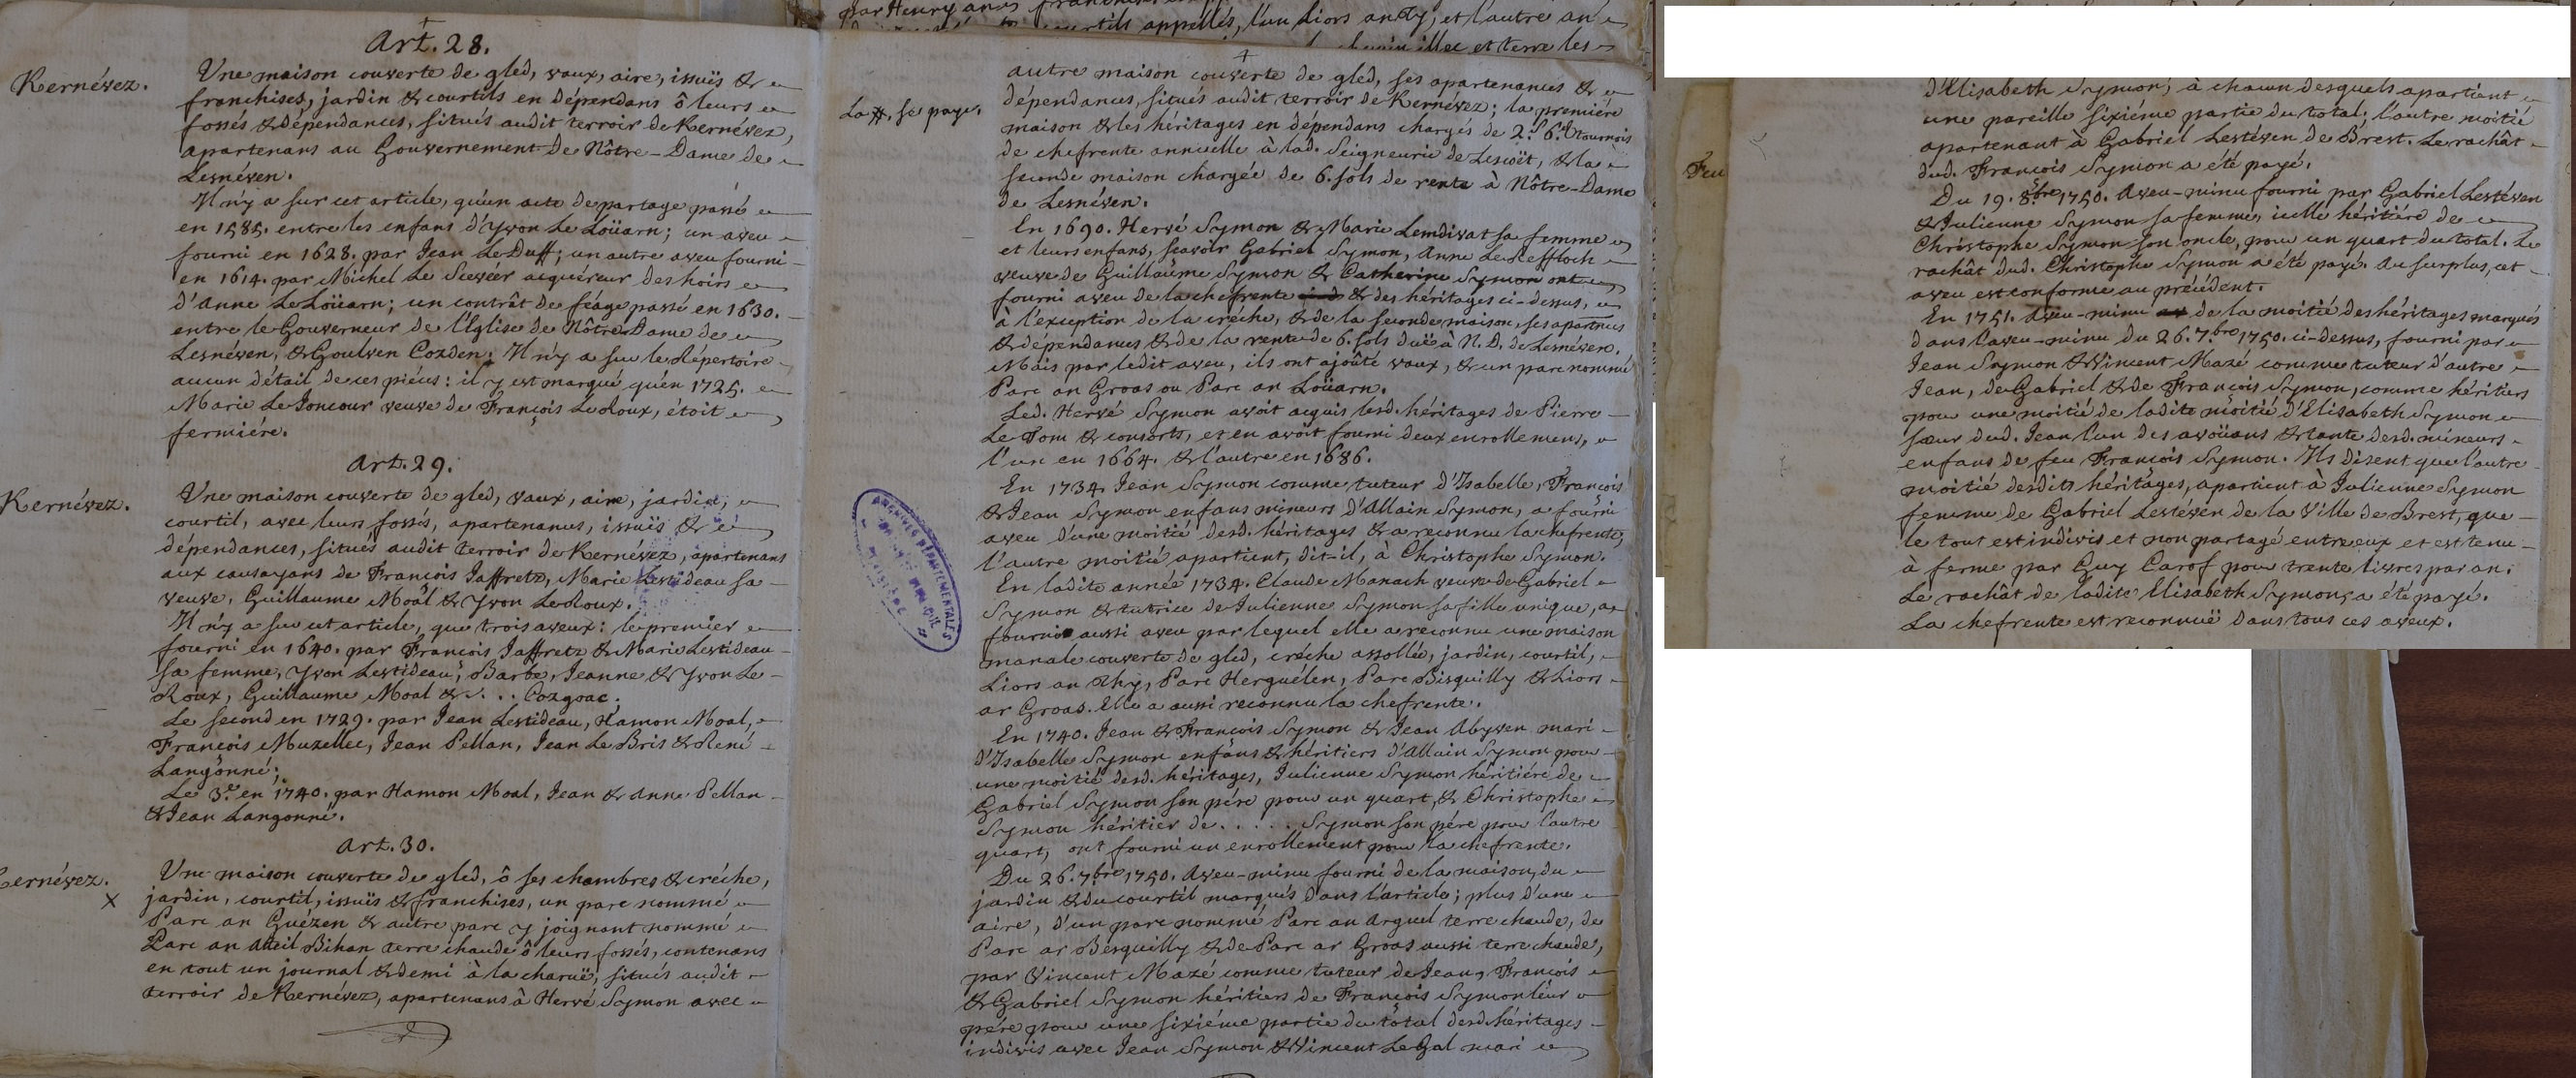 Art. 28.
Kernévez.
Une maison couverte de gled, vaux, aire, issuës &
franchises, jardin & courtils en dépendans ô leurs
fossés & dépendances, situés audit terroir de Kernévez,
apartenans au Gouvernement de Nôtre-Dame de
Lesnéven.
Il n'y a sur cet article, qu'un acte de partage passé
en 1585. entre les enfans d'Yvon Le Loüarn; un aveu
fourni en 1628. par Jean Le Duff; un autre aveu fourni
en 1614. par Michel Le acquéreur des hoirs
d'Anne Le Loüarn; un contrât de féage passé en 1630.
entre le Gouverneur de l'Eglise de Nôtre Dame de
Lesnéven, & Goulven Cozden. Il n'y a sur le répertoire
aucun détail de ces piéces: il y est marqué qu'en 1725.
Marie Le Joncour veuve de François Le Roux, étoit
fermiére.
Art. 29.
Kernévez.
Une maison couverte de gled, vaux, aire, jardin,
courtil, avec leurs fossés, apartenances, issuës &
dépendances, situés audit terroir de Kernévez, apartenans
aux causayans de François Jaffretz, Marie Lestideau sa
veuve, Guillaume Moal & Yvon Le Roux.
Il n'y a sur cet article, que trois aveux: le premier
fourni en 1640. par François Jaffretz & Marie Lestideau
sa femme, Yvon Lestideau, Barbe, Jeanne & Yvon Le
Roux, Guillaume Moal & . . . Cozgoac;
Le second en 1729. par Jean Lestideau, Hamon Moal,
François Muzellec, Jean Pellan, Jean Le Bris & René
Langonné;
Le 3.e en 1740. par Hamon Moal, Jean & Anne Pellan
& Jean Langonné.
Art. 30.
ernévez.
X
Une maison couverte de gled, ô ses chambres & créche,
jardin, courtil, issuës & franchises, un parc nommé
Parc an Guézen & autre parc y joignant nommé
Parc an Bihan terre chaude ô leurs fossés, contenans
en tout un journal & demi à la charuë, situés audit
terroir de Kernévez, apartenans à Hervé Symon avec
par Henry
courtils appellés, l'un Liors an Ty, et l'autre an
et terre les
autre maison couverte de gled, ses apartenances &
dépendances, situés audit terroir de Kernévez; la premiére
La #, se paye.
maison & les héritages en dépendans chargés de 2.s 6.d tournois
de chefrente annuelle à lad. Seigneurie de Lescoët, & la
seconde maison chargée de 6. sols de rente à Nôtre-Dame
de Lesnéven.
En 1690. Hervé Symon & Marie Lemdivat sa femme
et leurs enfans, sçavoir Gabriel Symon, Anne Le
veuve de Guillaume Symon & Catherine Symon ont
fourni aveu de la chefrente & des héritages ci-dessus,
à l'éxception de la créche, & de la seconde maison, ses apartnces
& dépendances & de la rente de 6. sols duë à N. D. de Lesnéven.
Mais par ledit aveu, ils ont ajoûté vaux, & un parc nommé
Parc an Groas ou Parc an Loüarn.
Led. Hervé Symon avoit acquis lesd. héritages de Pierre
Le Tom & consorts, et en avoit fourni deux enrollemens,
l'un en 1664. & l'autre en 1686.
En 1734. Jean Symon comme tuteur d'Isabelle, François
& Jean Symon enfans mineurs d'Allain Symon, a fourni
aveu d'une moitié desd. héritages & a reconnu la chefrente,
l'autre moitié apartient, dit-il, à Christophe Symon.
En ladite année 1734. Claude Manach veuve de Gabriel
Symon & tutrice de Julienne Symon sa fille unique, a
fourni aussi aveu par lequel elle a reconnu une maison
manale couverte de gled, créche assollée, jardin, courtil,
Liors an Thy, Parc Herguélen, Parc Bisquilly & Liors
ar Groas. Elle a aussi reconnu la chefrente.
En 1740. Jean & François Symon & Jean Abyven mari
d'Isabelle Symon enfans & héritiers d'Allain Symon pour
une moitié desd. héritages, Julienne Symon héritiére de
Gabriel Symon son pére pour un quart, & Christophe
Symon héritier de . . . . . Symon son pére pour l'autre
quart, ont fourni un enrollement pour la chefrente.
Du 26. 7.bre 1750. Aveu-minu fourni de la maison, du
jardin & du courtil marqués dans l'article; plus d'une
aire, d'un parc nommé Parc an Arguel terre chaude, de
Parc ar Besquilly & de Parc ar Groas aussi terre chaude,
par Vincent Mazé comme tuteur de Jean, François
& Gabriel Symon héritiers de François Symon leur
pére pour une sixiéme partie du total desd. héritages
indivis avec Jean Symon & Vincent Le Gal mari
ARCHIVES DÉPARTEMENTALES
FINISTÈRE
Feu
d'Elisabeth Symon, à chacun desquels apartient
une pareille sixiéme partie du total; l'autre moitié
apartenant à Gabriel Lestéven de Brest. Le rachât
dud. François Symon a été payé.
Du 19. 8.bre 1750. Aveu-minu fourni par Gabriel Lestéven
& Julienne Symon sa femme, icelle héritiére de
Christophe Symon son oncle, pour un quart du total. Le
rachât dud. Christophe Symon a été payé. Au surplus, cet
aveu est conforme au précédent.
En 1751. Aveu-minu de la moitié des héritages marqués
dans l'aveu-minu du 26. 7.bre 1750. ci-dessus, fourni par
Jean Symon & Vincent Mazé comme tuteur d'autre
Jean, de Gabriel & de François Symon, comme héritiers
pour une moitié de ladite moitié d'Elisabeth Symon
sœur dud. Jean l'un des avoüans & tante desd. mineurs
enfans de feu François Symon. Ils disent que l'autre
moitié desdits héritages, apartient à Julienne Symon
femme de Gabriel Lestéven de la Ville de Brest, que
le tout est indivis et non partagé entre eux et est tenu
à ferme par Guy Carof pour trente livres par an.
Le rachât de ladite Elisabeth Symon, a été payé.
La chefrente est reconnuë dans tous ces aveux.